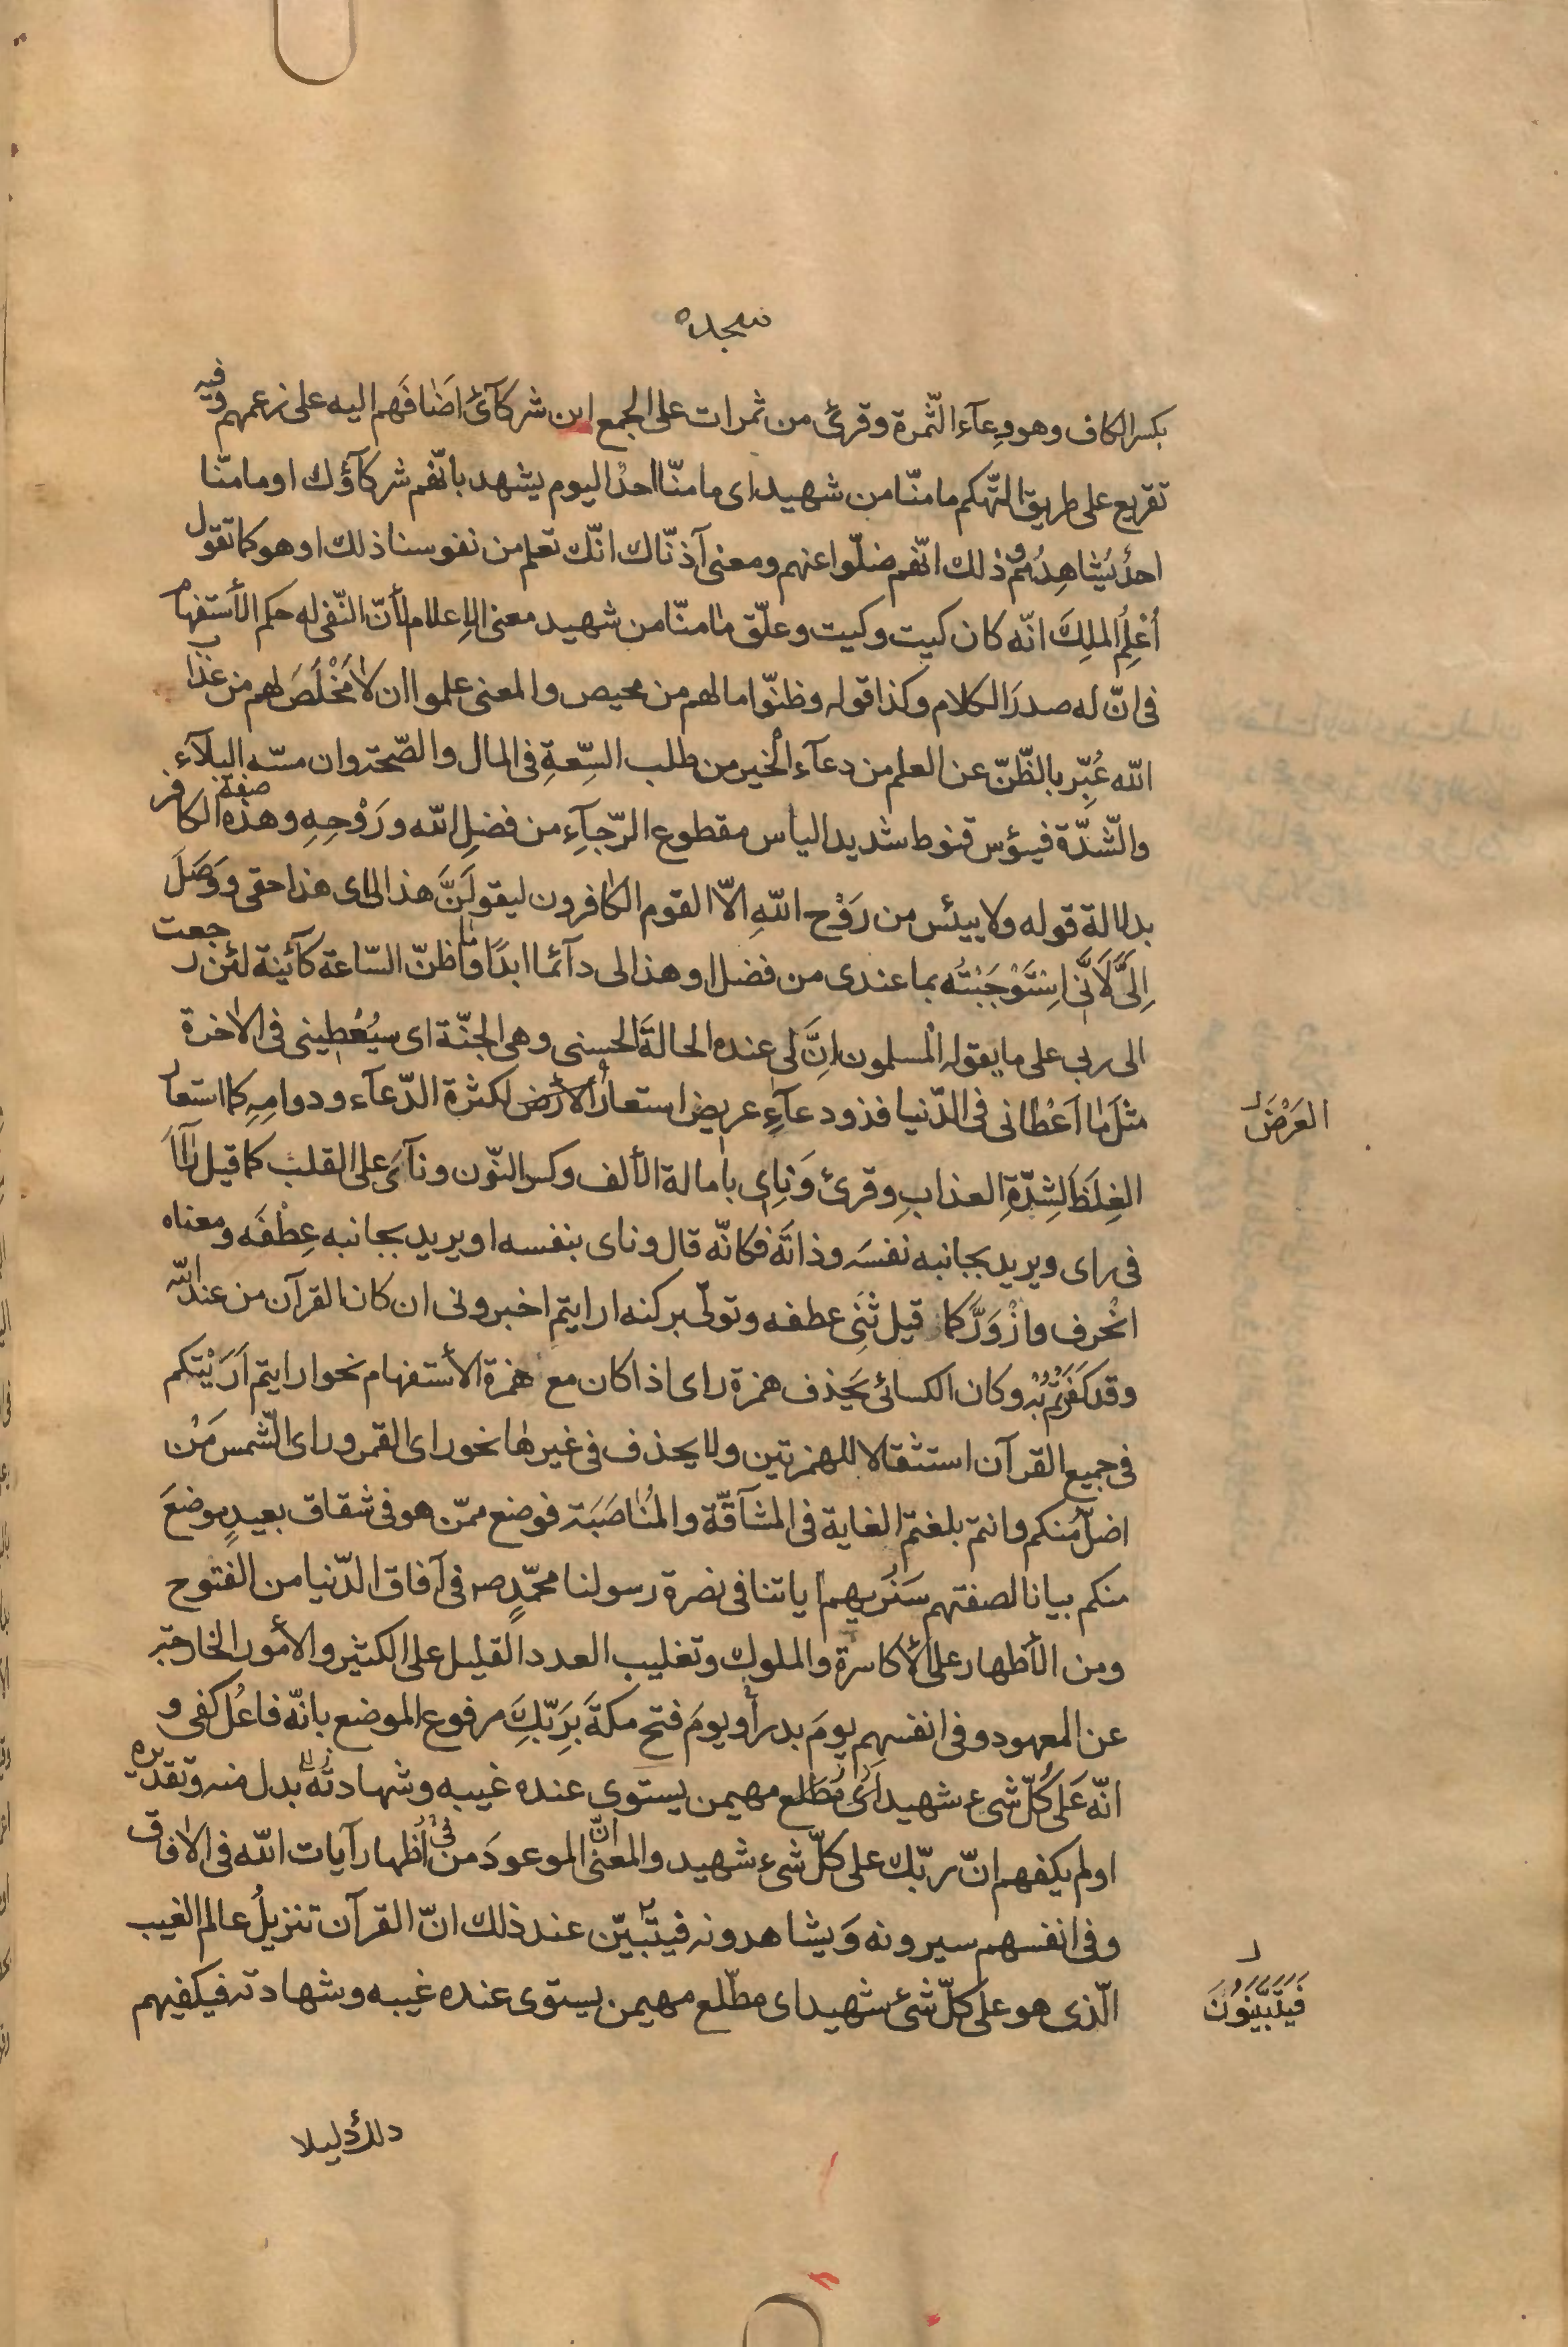 سجده
بكسر الكاف وهو وعآء الثّمرة وقرئ من ثمرات على الجمع اين شركآئ اَضافَهم اليه على زعمهم وفيه
تقريع على طريق التّهكم ما منّا من شهيد اى ما منّا احدٌ اليوم يشهد بانّهم شركآؤك او ما منّا
احدٌ يُشاهِدُهُم وذلك انّهم ضلّوا عنهم ومعنى آذنّاك انّك تعلم من نفوسنا ذلك او هو كما تقول
اُعْلِمُ الملِكَ انّه كان كيت وكيت وعلّق ما منّا من شهيد معنى الإعلام لأنّ النّفى له حكم الأستفهام
فى انّ له صدرَ الكلام وكذا قوله وظنّوا ما لهم من محيص والمعنى علموا ان لا مَخْلَصَ لهم من عذاب
الله عُبِّر بالظّنّ عن العلم من دعآء الخير من طلب السِّعةِ فى المال والصّحة وان مسّه البلآء
والشّدّة فيؤس قنوط شديد الياس مقطوع الرّجآءِ من فضلِ الله ورَوْحِهِ وهذه صفة الكافر
بدلالة قوله ولا ييئس من رَوْح اللهِ الاّ القوم الكافرون ليقولَنَّ هذا لى اى هذا حقى ووَصَلَ
اِلىَّ لَاَنّى اسْتَوْجَبْتُه بما عندى من فضل او هذا لى دآئما ابدًا وما اظنّ السّاعة كآئنة لئن رجعت
الى ربى على ما يقوله المسلمون اِنَّ لى عنده الحالةَ الحسنى وهى الجنّة اى سيُعْطِينى فى الآخرة
مثلَ ما اَعْطانى فى الدّنيا فذو دعآءٍ عريض استعار الأرض لكثرة الدّعآء ودوامِهِ كما استعار
العَرْضَ
الغِلَظَ لِشِدّةِ العذابِ وقرئ وَنِاى بامالة الألف وكسر النّون ونآءَ على القلب كما قيل رآاَ
فى راى ويريد بجانبه نفسَه وذاتَه فكانّه قال وناى بنفسه او يريد بجانبه عِطْفَه ومعناه
انْحرف وازْوَرَّ كما قيل ثَنى عطفه وتولّى بركنه ارايتم اخبرونى ان كان القرآن من عند الله
وقد كَفَرْتُمْ بِهِ وكان الكسائى يَحذف همزة راى اذا كان مع همزة الأستفهام نحو ارايتم اَرَيْتكم
فى جميع القرآن استثقالا للهمزتين ولا يحذف فى غيرها نحو راى القمر وراى الشّمس مَنْ
اضلّ منكم وانتم بلغتم الغاية فى المشآقّة والمُناصَبَة فوضع ممّن هو فى شقاق بعيدٍ موضعَ
منكم بيانا لصفتهم سَنُريهم اياتنا فى نصرة رسولنا محمّدٍ صـ فى آفاق الدّنيا من الفتوح
ومن الأظهار على الأكاسرة والملوك وتغليب العدد القليل على الكثير والأمور الخارجة
عن المعهود وفى انفسهم يومَ بدر أو يومَ فتح مكةَ بِرَبّكَِ مرفوع الموضع بانّه فاعل كفى و
انّه عَلى كُلّ شىء شهيد اى مُطّلع مهيمن يستوى عنده غيبه وشهادته بدل منه وتقديره
اولم يكفهم انّ ربّك على كلّ شىء شهيد والمعنى انّ الموعودَ من اظهار آيات الله فى الافاق
وفى انفسهم سيرونه وَيشاهدونه فيتبيّن عند ذلك انّ القرآن تنزيلُ عالم الغيب
فَيَتَبَيَّنُونَ
الّذى هو على كلّ شئ شهيد اى مطّلع مهيمن يستوى عنده غيبه وشهادته فيكفيهم
ذلك دليلا